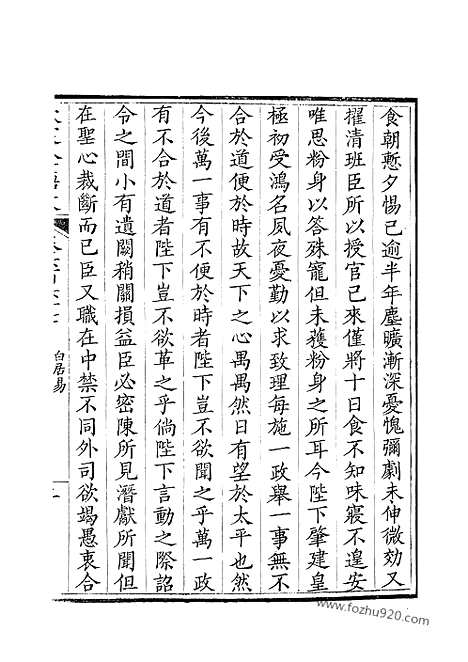 食朝慙夕惕已逾半年塵曠漸深憂愧彌劇未伸微効又
擢清班臣所以授官已來僅將十日食不知味寢不遑安
唯思粉身以答殊寵但未穫粉身之所耳今陛下肇建皇
極初受鴻名夙夜憂勤以求致理每施一政舉一事無不
合於道便於時故天下之心顒顒然日有望於太平也然
今後萬一事有不便於時者陛下豈不欲聞之乎萬一政
有不合於道者陛下豈不欲革之乎倘陛下言動之際詔
令之間小有遺闕稍關損益臣必密陳所見潛獻所聞但
在聖心裁斷而已臣又職在中禁不同外司欲竭愚衷合
白居易
www.fozhu920.com